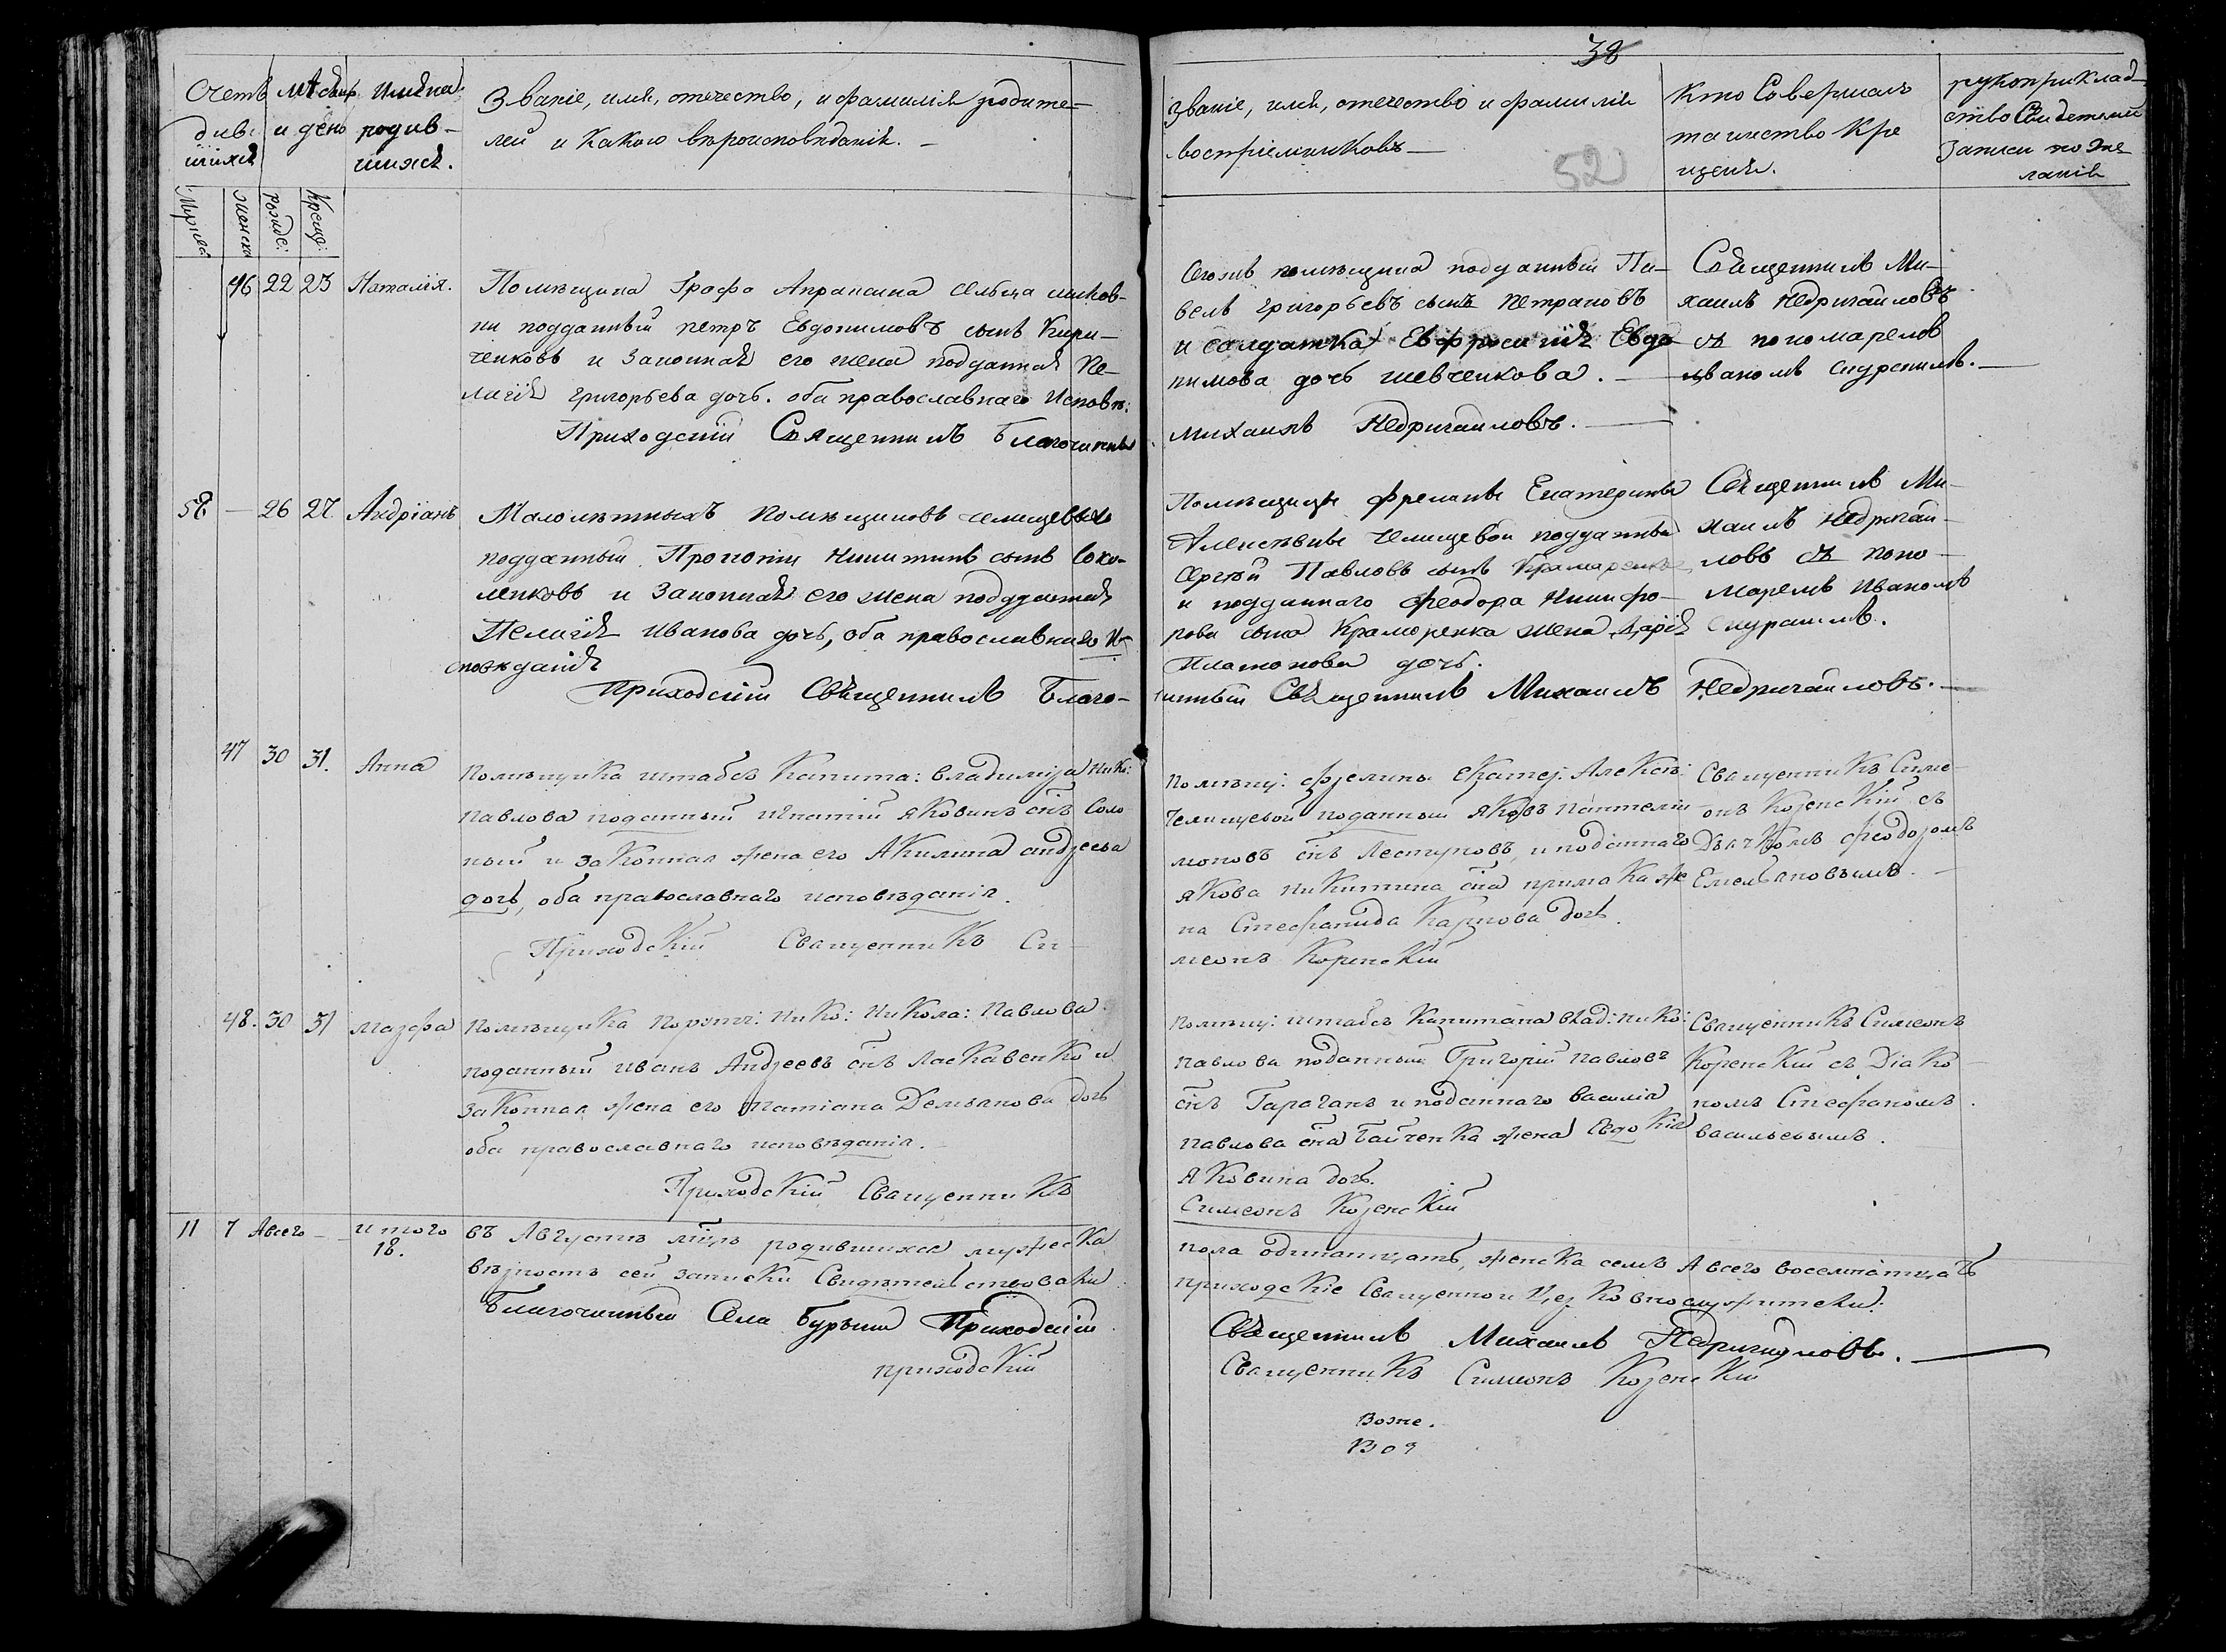 38
52
Счетъ
див-
шихся
Мѣсяцъ
и день
Имяна
родив-
шихся.
Званіе, имя, отечество, и фамилія родите-
лей и какого вѣроисповѣданія.
Званіе, имя, отечество и фамилія
воспріемниковъ
Кто Совершалъ
таинство Кре
щенія.
рукоприклад
ство Свидетелей
Записи по Же
ланію
Мужеск
Женска
Рожде:
Крещ:
46 22 23 Наталія.
Помѣщика Графа Апраксина сельца
ни подданный петръ Евдокимовъ сынъ Кири-
ченковъ и Законная его жена подданная Пе-
лагія григорьева дочь. оба православнаго Исповѣ:
Приходскій Священникъ Благочинный
Оегожъ помѣщика подданный Па-
велъ григорьевъ сынъ Петрановъ
и салдатка Евфросинія Евдо
кимова дочь шевченкова.
Михаилъ Недригайловъ.
Священникъ Ми-
хаилъ Недригайловъ
съ пономаремъ
Иваномъ
58 - 26 27 Андріанъ
Малолѣтныхъ помѣщиковъ челищевыхъ
подданный Прокопій Никитинъ сынъ Соко-
ленковъ и Законная его жена подданная
Пелагія Иванова дочь, оба православнаго И-
сповѣданія
Приходскій Священникъ Благо-
Помѣщицы фрелины Екатерины
Алексѣевны челищевой подданный
Сергѣй Павловъ сынъ Крамаренко
и подданнаго Феодора Никифо-
рова сына Краморенка жена Дарія
Платонова дочь.
чинный Священникъ Михаилъ Недригайловъ.
Священникъ Ми-
хаилъ Недригай-
ловъ съ поно-
маремъ Иваномъ
47 30 31. Анна
Помѣщика штабсъ Капита: Владиміра Нико:
Павлова поданный Игнатій Яковинъ снъ Соло
ный и законная жена его Акилина андреева
дочь, оба православнаго исповѣданія.
Приходскій Священникъ Си-
помѣщ: фрелины Екатер: Алексѣ:
Челищевой поданный Яковъ Пантелій
моновъ снъ Лестуновъ, и поданнаго
Якова Никитина сна примака же
на Стефанида Карпова дочь.
меонъ Коренскій
Священникъ Симе
онъ Коренскій съ
Дьячкомъ Феодоромъ
Емельяновымъ.
48. 30 31 Марфа
Помѣщика Порутч: Нико: Никола: Павлова
поданный Иванъ Андреевъ снъ Ласкавенко и
законная жена его Татіана Демьянова дочь
оба православнаго исповѣданія.
Приходскій Священникъ
помѣщ: штабсъ Капитана Влад: Нико:
Павлова поданный Григорій Павловъ
снъ Гараганъ и поданнаго Василія
Павлова сна Байченка жена Евдокія
Яковина дочь.
Симеонъ Коренскій
Священникъ Симеонъ
Коренскій съ Діако
номъ Стефаномъ
васильевымъ.
11 7 Авсего - - итого
18.
въ Августѣ мцѣ родившихся мужеска
пола одинатцать, женска семь Авсего восемнатцать
вѣрность сей записки Свидѣтельствовали
приходскіе Священно и Церковнослужители:
Благочинный Села Бурыни Приходскій
Священникъ Михаилъ Недригайловъ.
приходскій
Священникъ Симеонъ Коренскій
Боже.